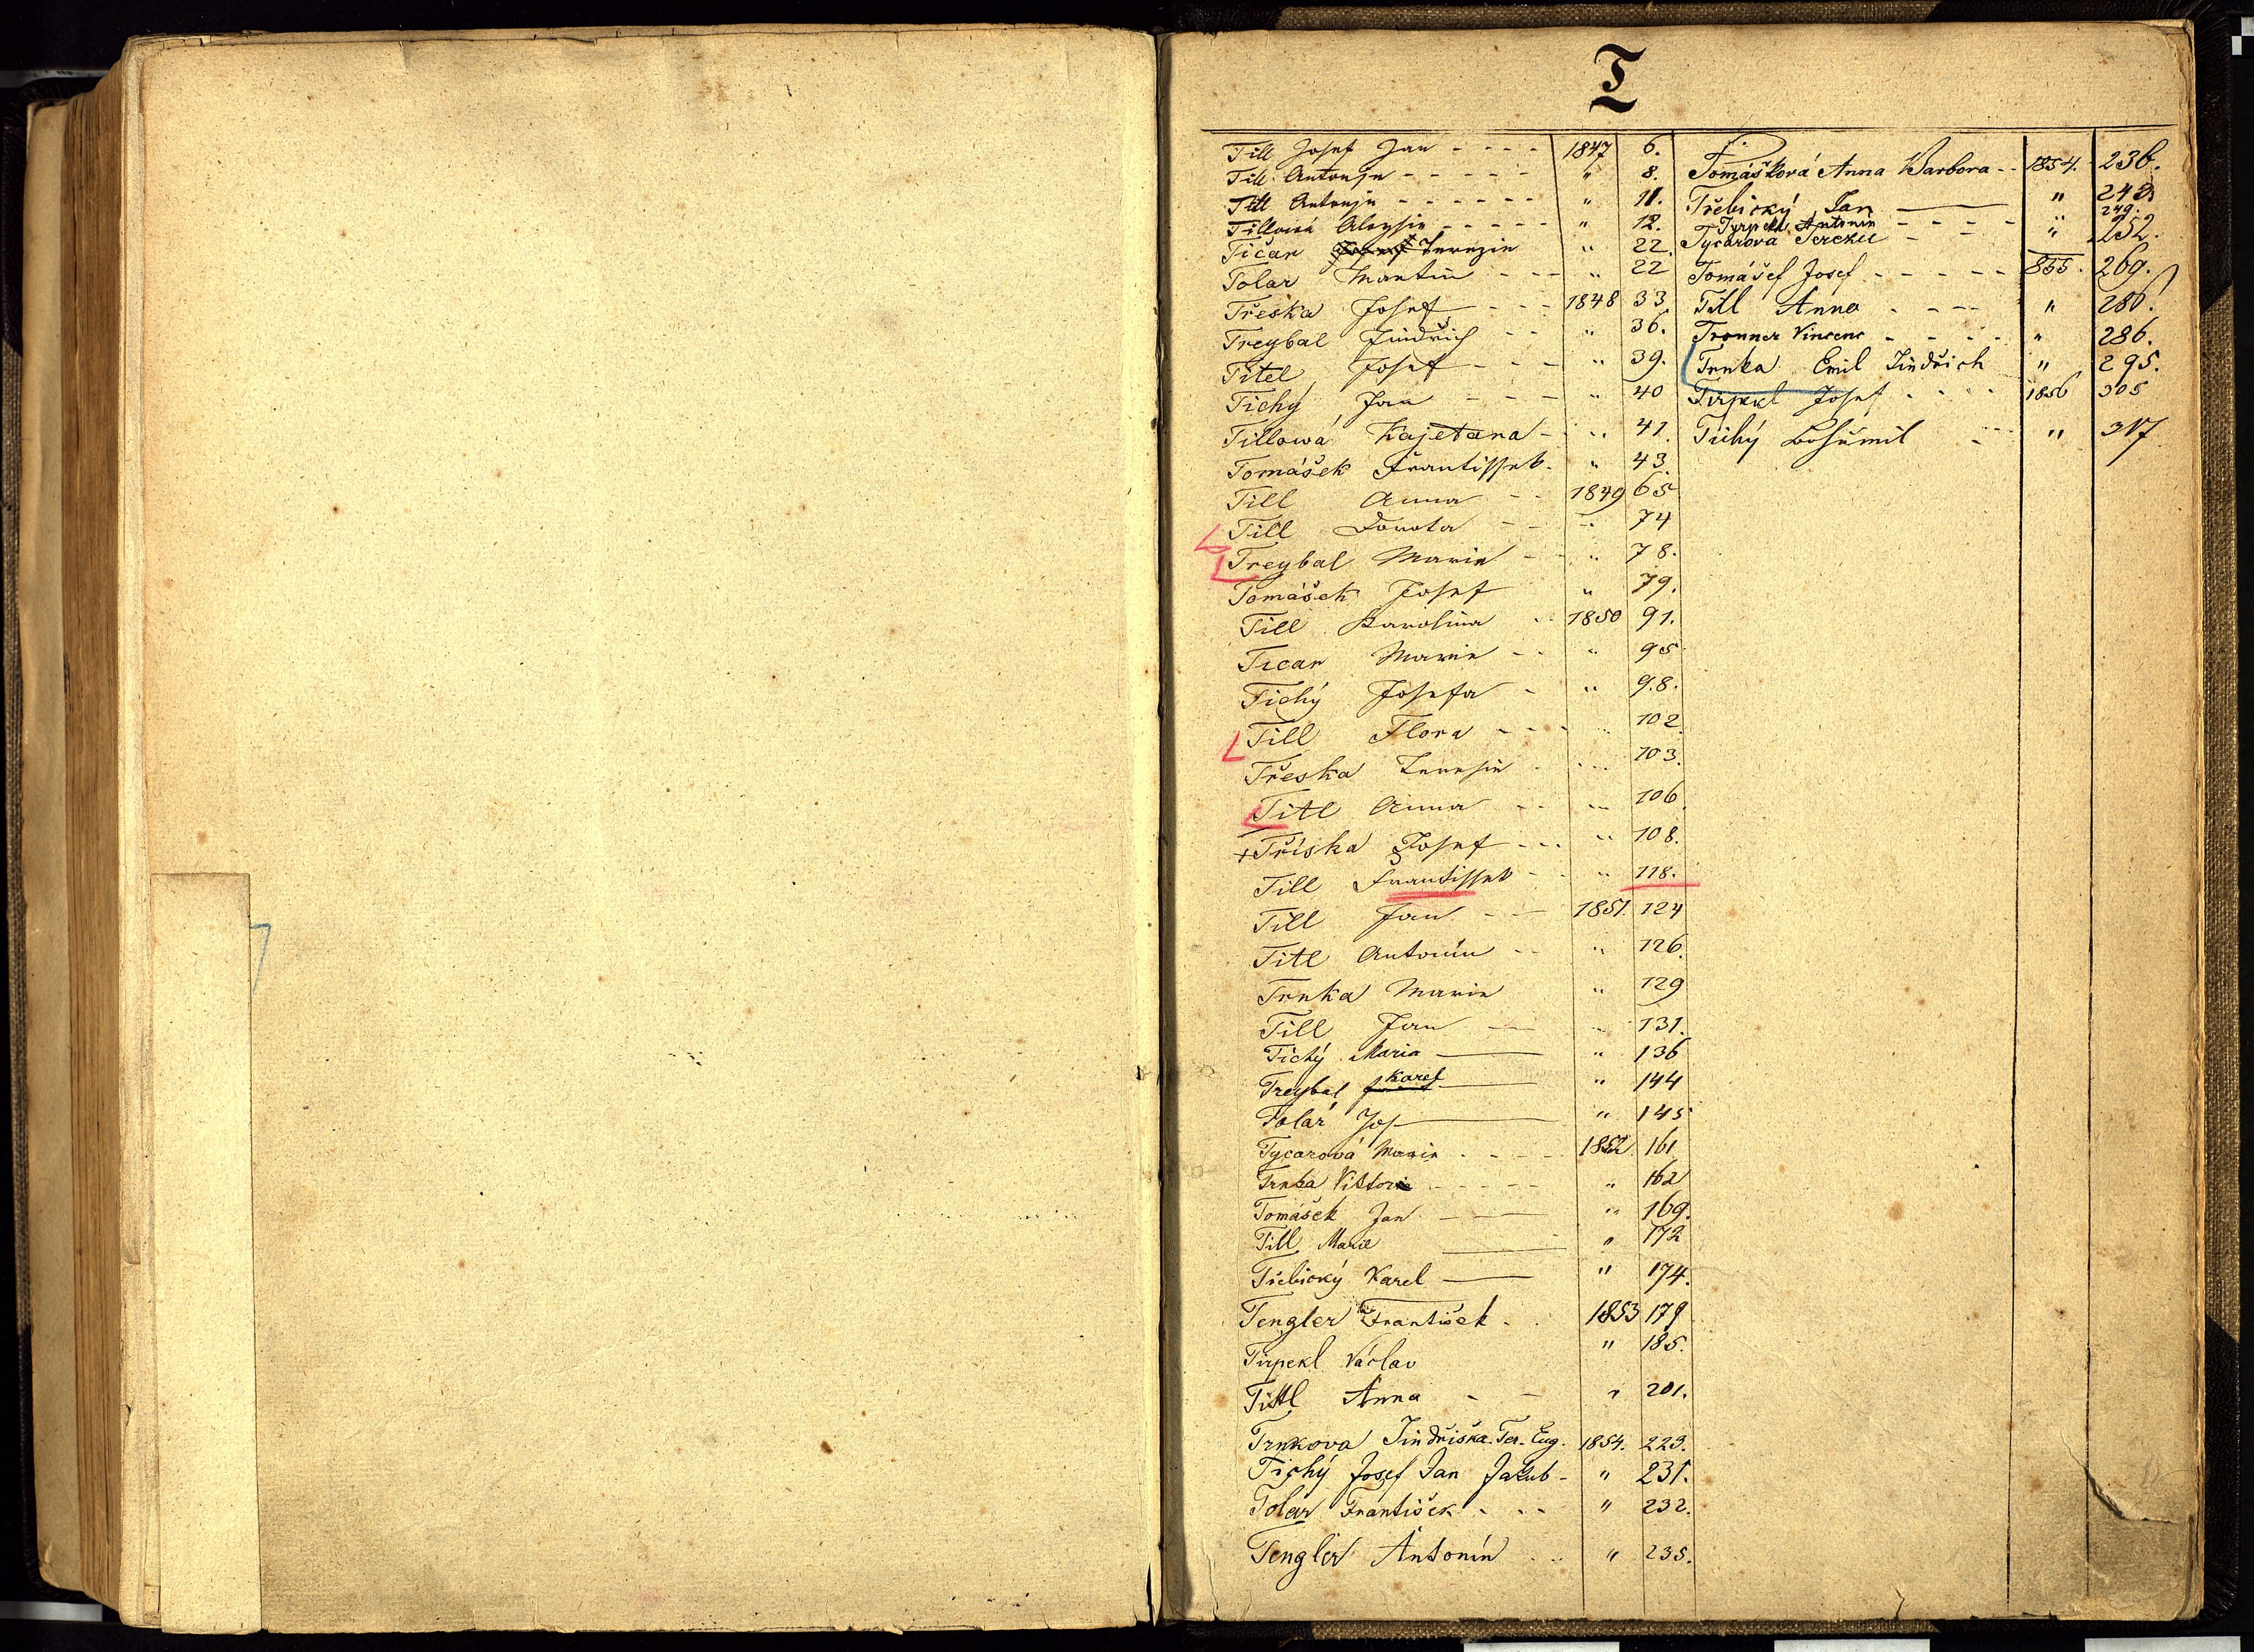 T
Till Josef Jan - - - - 1847 6.
Till Antonje - - - - - " 8.
Till Antonje - - - - - - " 11.
Tillowá Aloysie - - - - - " 12.
Tičar Terezie " 22
Tolar Martin - - - " 22
Třeska Josef - - - 1848 33
Treybal Jindřich - - " 36.
Titel Josef - - - " 39.
Tichý Jan - - - " 40
Tillowá Kajetana - " 41.
Tomášek Frantissek - " 43.
Till Anna - - 1849 65
Till Dorota - - " 74
Treybal Marie - - " 78.
Tomášek Josef " 79.
Till Karolina - - 1850 91.
Ticar Marie - - " 95
Tichý Josefa - " 98.
Till Flora - - - " 102
Třeska Teresie - " 103.
Titl Anna - - " 106
+ Tříska Josef - - - " 108.
Till Frantissek - - " 118.
Till Jan - - 1851. 124
Titl Antonín - - " 126.
Trnka Marie " 129
Till Jan - " 131.
Tichý Maria - " 136
Treybal Karel - " 144
Tolar Jos - " 145
Tycarová Marie - - - - 1852 161
Trnka Viktor - - - - - " 162
Tomášek Jan - - " 169.
Till Marie - " 172
Třebický Karel - " 174.
Tengler František - . 1853 179
Tirpekl Václav " 185.
Tittl Anna - - " 201.
Trnkova Jindřiška Ter. Eug. 1854. 223.
Tichý Josef Jan Jakub - " 231.
Tolar František - - - " 232.
Tengler Antonín - - " 235.
Tomášková Anna Barbora - - 1854. 236.
Třebický Jan - " 242
Tyrpekl Antonín - - - - " 249.
Tycarova Terezie - " 252.
Tomášef Josef - - - - - 855. 269.
Till Anna - - - - " 286.
Tronner Vincenc - - - - " 286.
Trnka Emil Jindřich " 295.
Tirpekl Josef - - - 1856 305
Tichý Bohumil - - " 317